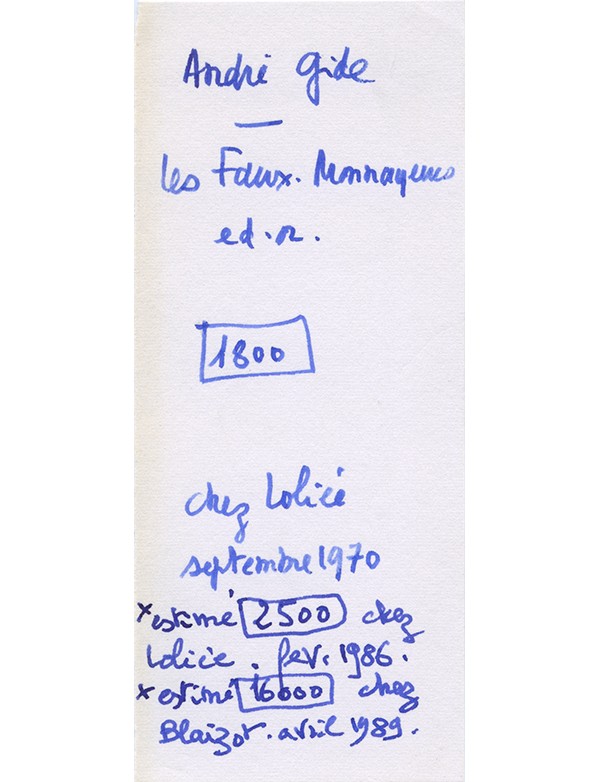 André Gide
—
Les Faux. Monnayeurs
ed. or.
1800
chez Loliée
septembre 1970
x estimé 2500 chez
Loliée . fev. 1986.
x estimé 16000 chez
Blaizot. avril 1989.